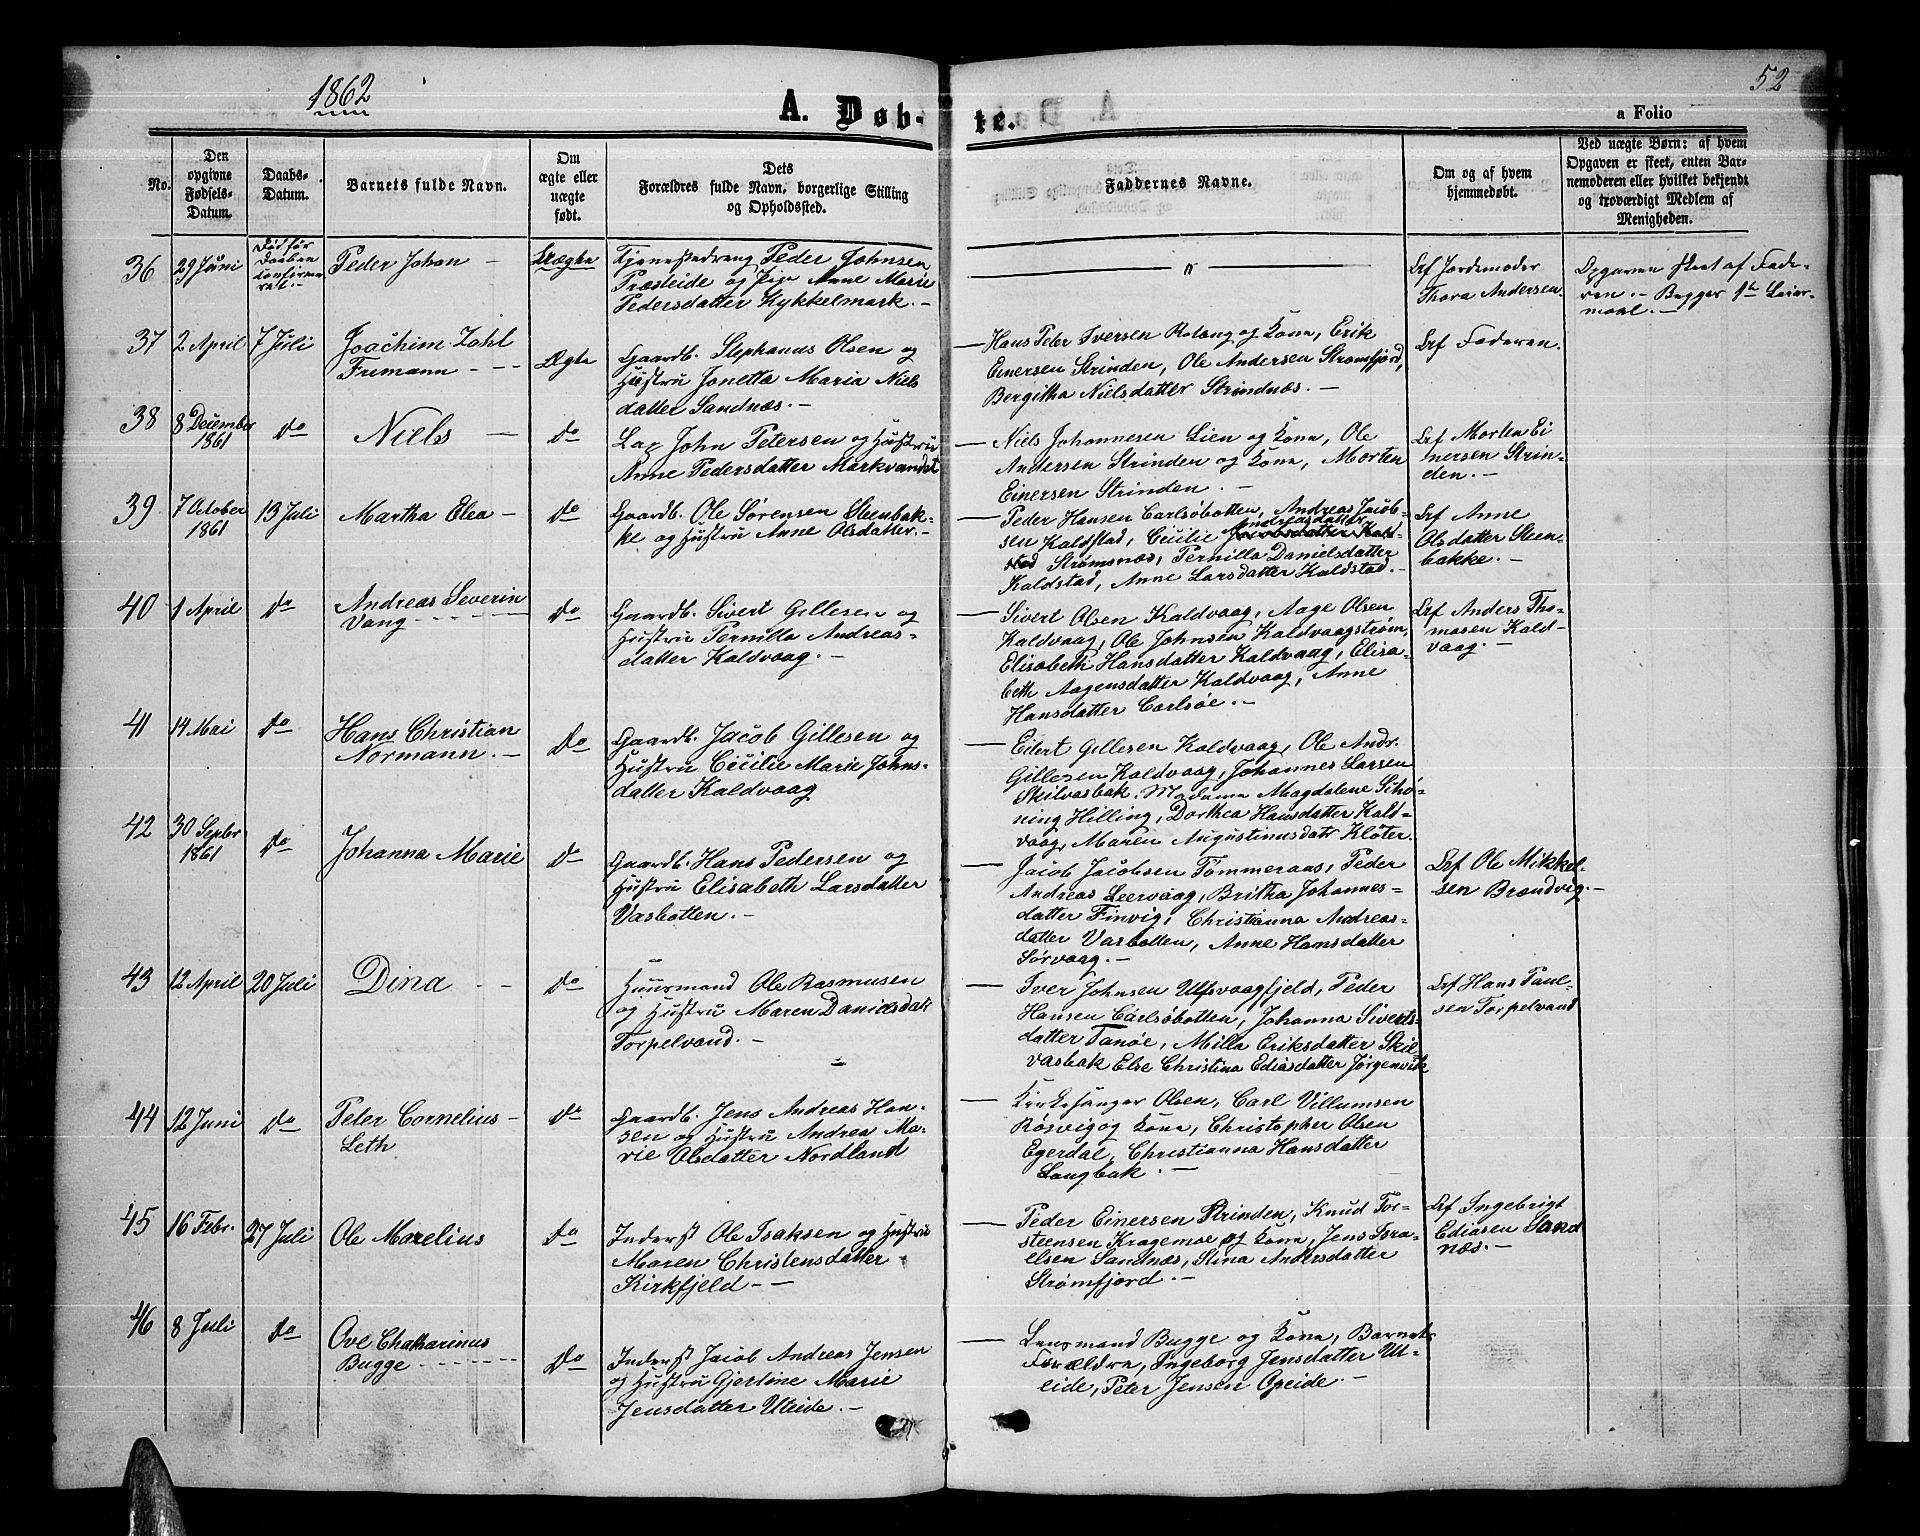 1862
52
A. Døb-
te.
a Folio
No.
Den
opgivne
Fødsels-
Datum.
Daabs-
Datum.
Barnets fulde Navn.
Om
ægte eller
uægte
født.
Dets
Forældres fulde Navn, borgerlige Stilling
og Opholdssted.
Faddernes Navne.
Om og af hvem
hjemmedøbt.
Ved uægte Børn: af hvem
Opgaven er skeet, enten Bar-
nemoderen eller hvilket bekjendt
og troværdigt Medlem af
Menigheden.
36
29 Juni
Død før
Daaben
Confirme-
ret.-
Peder Johan -
Uægte
Tjenestedreng Peder Johnsen
Præsteide og Pige Anne Marie
Pedersdatter Kykkelmark. -
"
af Jordemoder
Thora Andersen
Opgaven skeet af Fade-
ren. - Begges 1te Leier-
maal. -
37
2 April
7 Juli
Joachim Zahl
Fremann - - -
Ægte
Gaardb. Stephanus Olsen og
Hustru Jonetta Maria Niels
datter Sandnæs. -
- Hans Peter Iversen Rotang og Kone, Erik
Einersen Strinden, Ole Andersen Strømfjord,
Bergitha Nielsdatter Strindnæs. -
af Faderen.
38
8 December
1861
Do
Niels -
Do
Lap John Petersen og Hustru
Anne Pedersdatter Markvandet
- Niels Johannesen Lien og Kone, Ole
Andersen Strinden og Kone, Morten
Einersen Strinden. -
af Morten Ei
nersen Strin-
den. -
39
7 October
1861
13 Juli
Martha Elea -
Do
Gaardb. Ole Sørensen Steenbak-
ke og Hustru Anne Olsdatter. -
- Peder Hansen Carlsøbotten, Andreas Jacob-
sen Kaldstad, Cecilie Jacobsdatter Kald-
Andreasdatter
stad Strømsnæs, Pernilla Danielsdatter
Kaldstad, Anne Larsdatter Kaldstad. -
af Anne
Olsdatter Steen-
bakke. -
40
1 April
Do
Andreas Severin
Vang - - - - -
Do
Gaardb. Sivert Gillesen og
Hustru Pernilla Andreas-
datter Kaldvaag. -
- Sivert Olsen Kaldvaag, Aage Olsen
Kaldvaag, Ole Johnsen Kaldvaagstrøm,
Elisabeth Hansdatter Kaldvaag, Elisa-
beth Aagensdatter Kaldvaag, Anne
Hansdatter Carlsøe. -
af Anders Tho-
masen Kald-
vaag. -
41
14 Mai
Do
Hans Christian
Normann. -
Do
Gaardb. Jacob Gillesen og
Hustru Cecilie Marie Johns-
datter Kaldvaag
- Eilert Gillesen Kaldvaag, Ole Andr.
Gillesen Kaldvaag, Johannes Larsen
Skilvasbak, Madame Magdalene Schø-
ning Hilling, Dorthea Hansdatter Kald-
vaag, Maren Augustinusdatr Kløter.
42
30 Septbr
1861
Do
Johanna Marie
Do
Gaardb. Hans Pedersen og
Hustru Elisabeth Larsdatter
Vasbotten. -
- Jacob Jacobsen Tømmeraas, Peder
Andreas Leervaag, Britha Johannes-
datter Finvig, Christianna Andreas-
datter Vasbotten, Anne Hansdatter
Sørvaag. -
af Ole Mikkel-
sen Brandvig. -
43
12 April
20 Juli
Dina - -
Do
Huusmand Ole Rasmusen
og Hustru Maren Danielsdatr
Torpelvand. -
- Iver Johnsen Ulfsvaagfjeld, Peder
Hansen Carlsøbotten, Johanna Siverts-
datter Tanøe, Milla Eriksdatter Skil
vasbak Else Christina Ediasdatter Jørgenvik
af Hans Paul-
sen Torpelvand
44
12 Juni
Do
Peter Cornelius -
Leth
Do
Gaardb. Jens Andreas Han-
sen og Hustru Andrea Ma-
rie Olsdatter Nordland
- Kirkesanger Olsen, Carl Villumsen
Røsvig og Kone, Christopher Olsen
Egerdal, Christianna Hansdatter
Langbak. -
45
16 Febr.
27 Juli
Ole Marelius
Do
Inderst Ole Isaksen og Hustru
Maren Christensdatter
Kirkfjeld - -
- Peder Einersen Strinden, Knud Tor-
steensen Kragemoe og Kone, Jens Isra-
elsen Sandnæs, Stina Andersdatter
Strømfjord. -
af Ingebrigt
Ediasen Sand
næs. -
46
8 Juli
Do
Ove Chatharinus
Bugge - - - - -
Do
Inderst Jacob Andreas Jensen
og Hustru Gjertine Marie
Jensdatter Uteide. -
- Lensmand Bugge og Kone, Barnets
Forældre, Ingeborg Jensdatter Ut-
eide, Peter Jensen Opeide. -